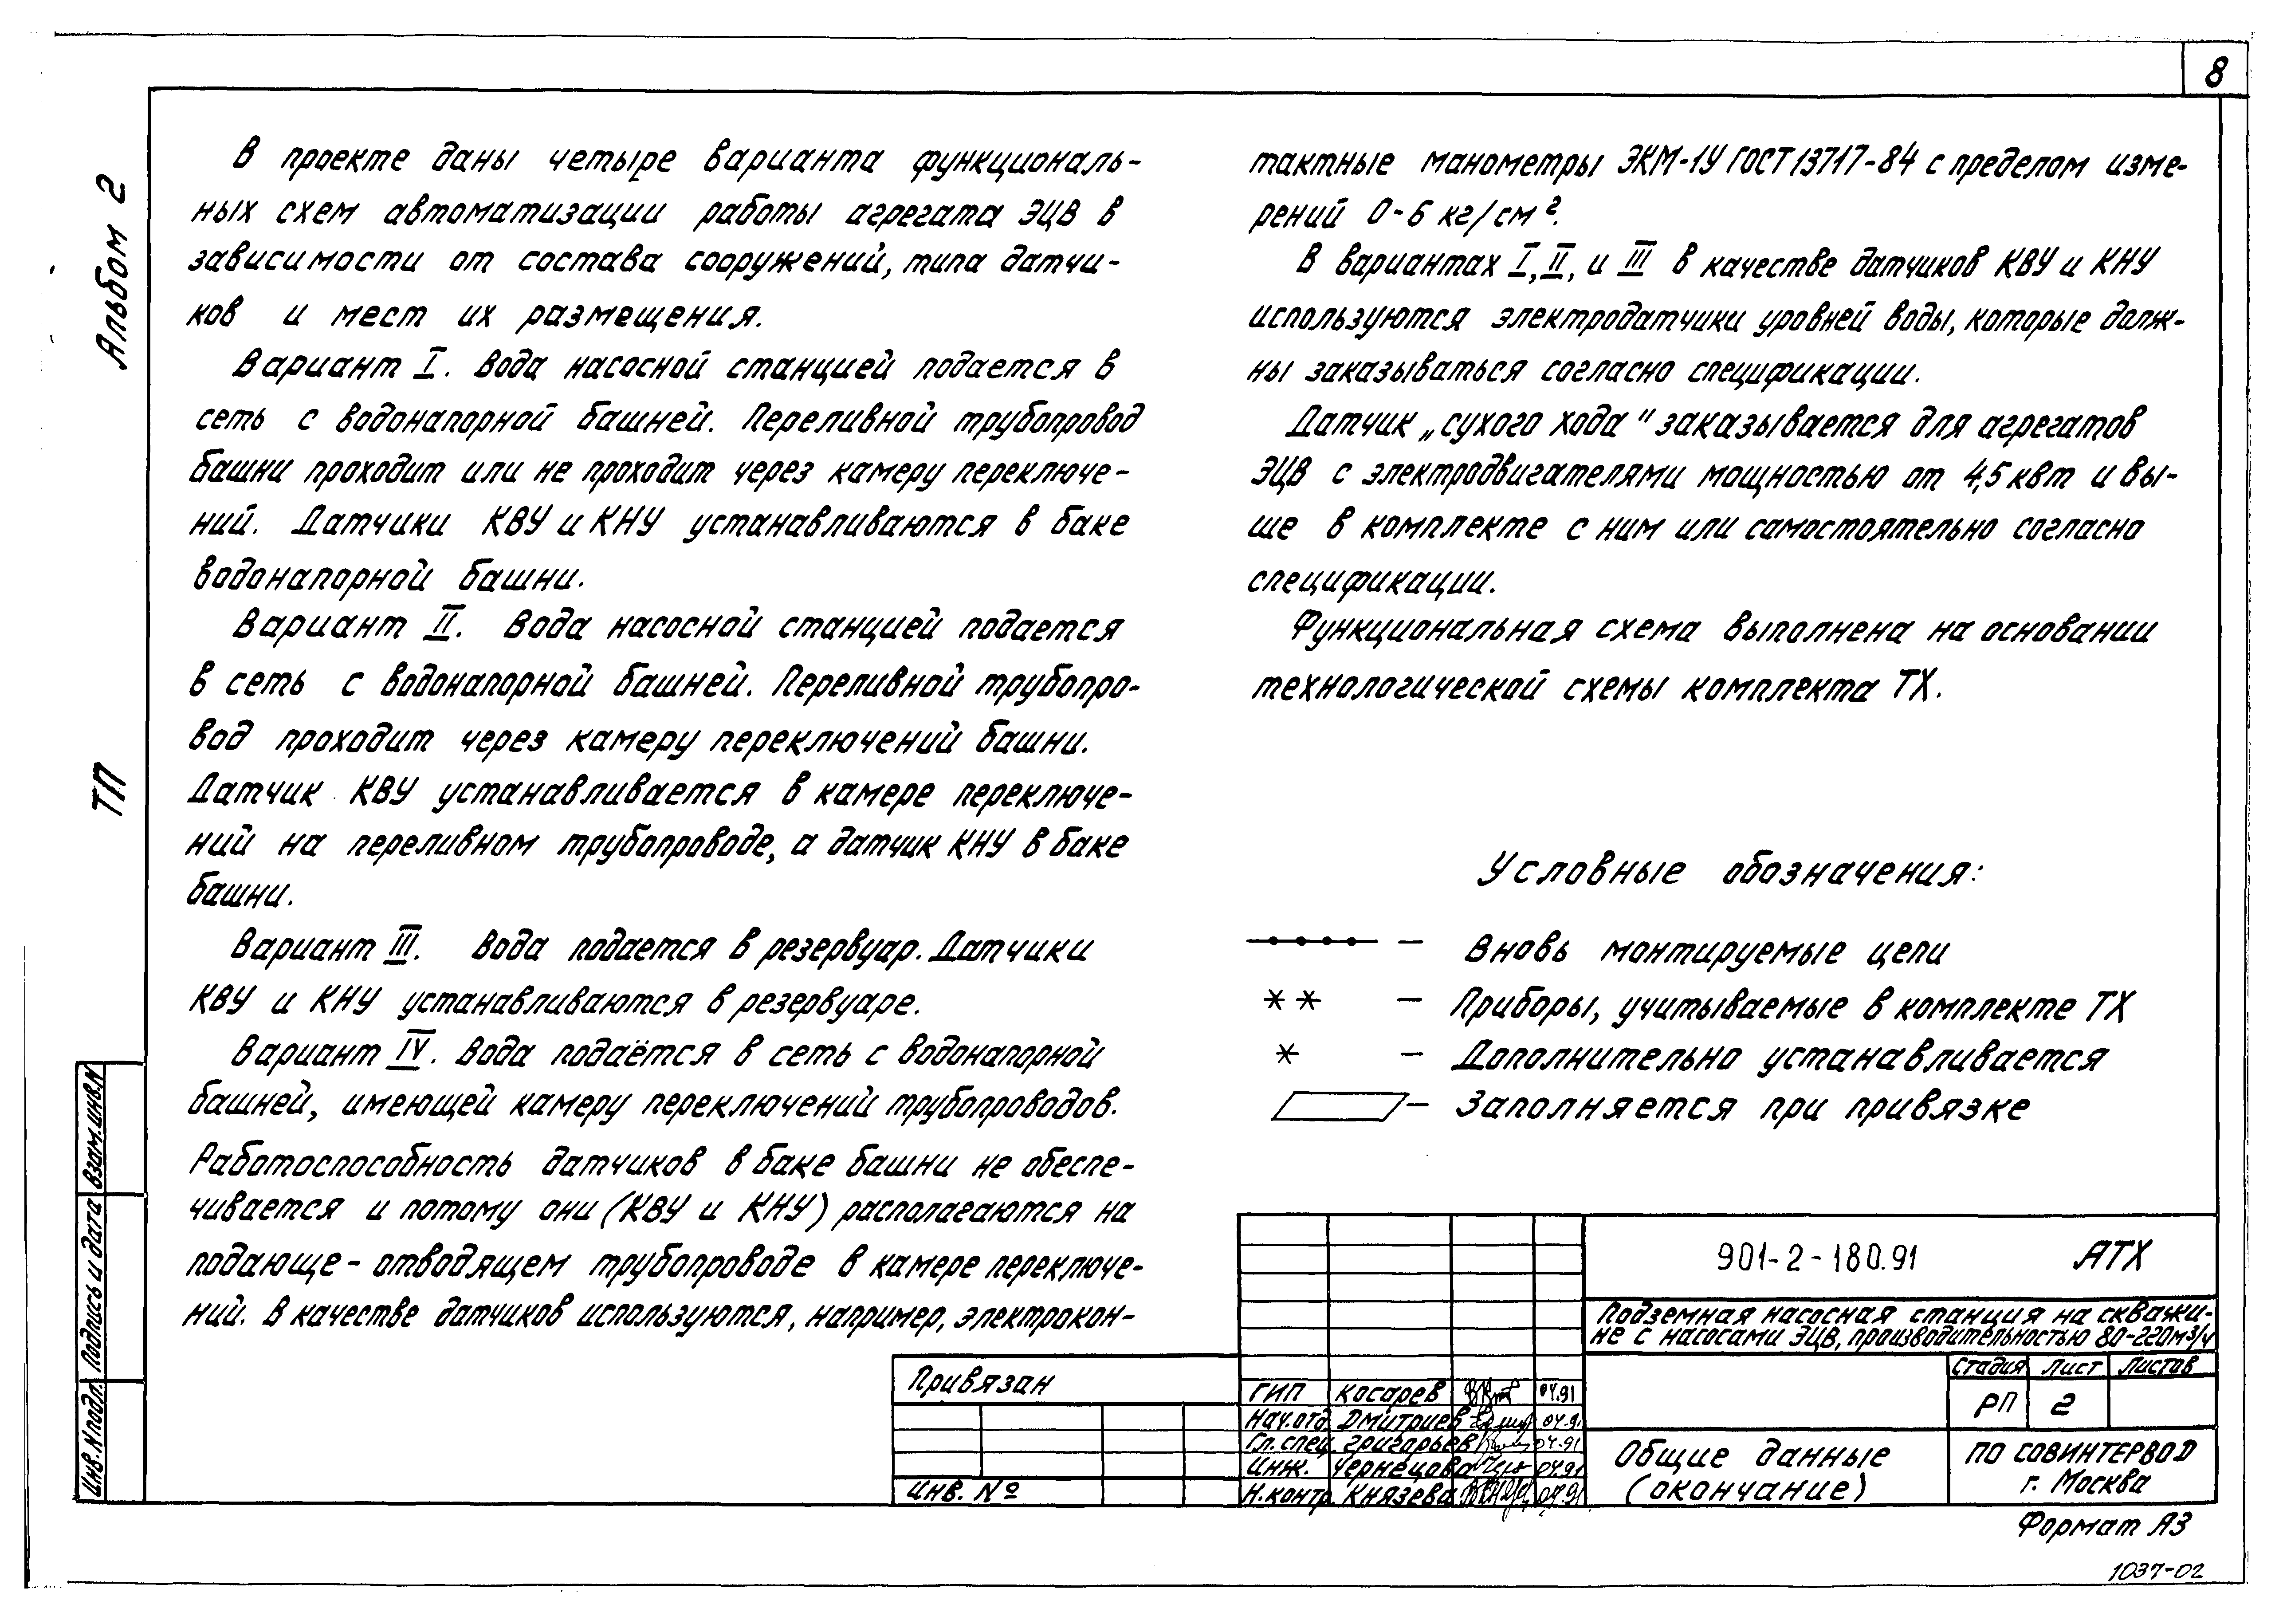 8
Альбом 2
ТП
В проекте даны четыре варианта функциональ-
ных схем автоматизации работы агрегата ЭЦВ в
зависимости от состава сооружений, типа датчи-
ков и мест их размещения.
Вариант I. Вода насосной станцией подается в
сеть с водонапорной башней. Переливной трубопровод
башни проходит или не проходит через камеру переключе-
ний. Датчики КВУ и КНУ устанавливаются в баке
водонапорной башни.
Вариант II. Вода насосной станцией подается
в сеть с водонапорной башней. Переливной трубопро-
вод проходит через камеру переключений башни.
Датчик КВУ устанавливается в камере переключе-
ний на переливном трубопроводе, а датчик КНУ в баке
башни.
Вариант III. Вода подается в резервуар. Датчики
КВУ и КНУ устанавливаются в резервуаре.
Вариант IV. Вода подаётся в сеть с водонапорной
башней, имеющей камеру переключений трубопроводов.
Работоспособность датчиков в баке башни не обеспе-
чивается и потому они (КВУ и КНУ) располагаются на
подающе-отводящем трубопроводе в камере переключе-
ний. В качестве датчиков используются, например, электрокон-
тактные манометры ЭКМ-1У ГОСТ 13717-84 с пределом изме-
рений 0-6 кг/см².
В вариантах I, II, и III в качестве датчиков КВУ и КНУ
используются электродатчики уровней воды, которые долж-
ны заказываться согласно спецификации.
Датчик „сухого хода" заказывается для агрегатов
ЭЦВ с электродвигателями мощностью от 4,5 квт и вы-
ше в комплекте с ним или самостоятельно согласно
спецификации.
Функциональная схема выполнена на основании
технологической схемы комплекта ТХ.
Условные обозначения:
– Вновь монтируемые цепи
** – Приборы, учитываемые в комплекте ТХ
* – Дополнительно устанавливается
– Заполняется при привязке
Взам.инв.N
Подпись и дата
Инв.N подл.
Привязан
Инв. №
ГИП Косарев 04.91
Нач.отд Дмитриев 04.91
Гл.спец. Григорьев 04.91
Инж. Чернецова 04.91
Н.контр. Князева 04.91
901-2-180.91 АТХ
Подземная насосная станция на скважи-
не с насосами ЭЦВ, производительностью 80-220м3/ч
Стадия Лист Листов
РП 2
Общие данные
(окончание)
ПО СОВИНТЕРВОД
г. Москва
Формат А3
1037-02